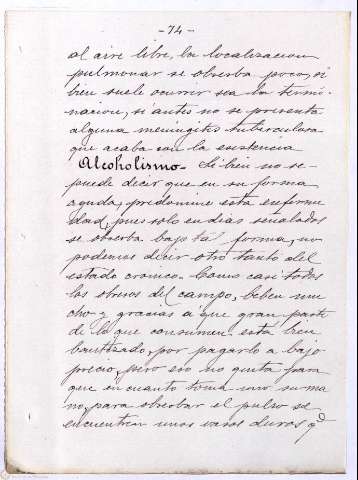 -74-
al aire libre, la localizacion
pulmonar se observa poco, si
bien suele ocurrir sea la termi-
nacion, si antes no se presenta
alguna meningitis tuberculosa
que acaba con la existencia
Alcoholismo. Si bien no se
puede decir que en su forma
aguda, predomine esta enferme
dad, pues solo en dias señalados
se observa bajo tal forma, no
podemos decir otro tanto del
estado cronico. Como casi todos
los obreros del campo, beben mu
cho y gracias á que gran parte
de lo que consumen está bien
bautizado, por pagarlo a bajo
precio, pero eso no quita para
que en cuanto toma uno su ma
no, para observar el pulso se
encuentran unos vasos duros qe